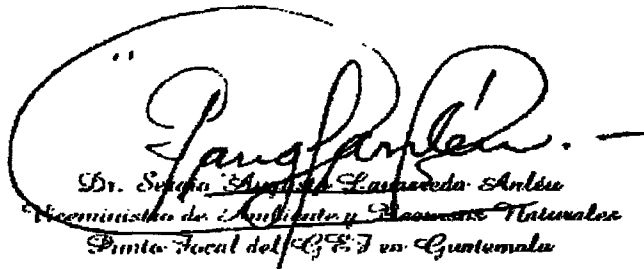 Dr. Sergio Augusto Lavarreda Anléu
Viceministro de Ambiente y Recursos Naturales
Punto Focal del GEF en Guatemala